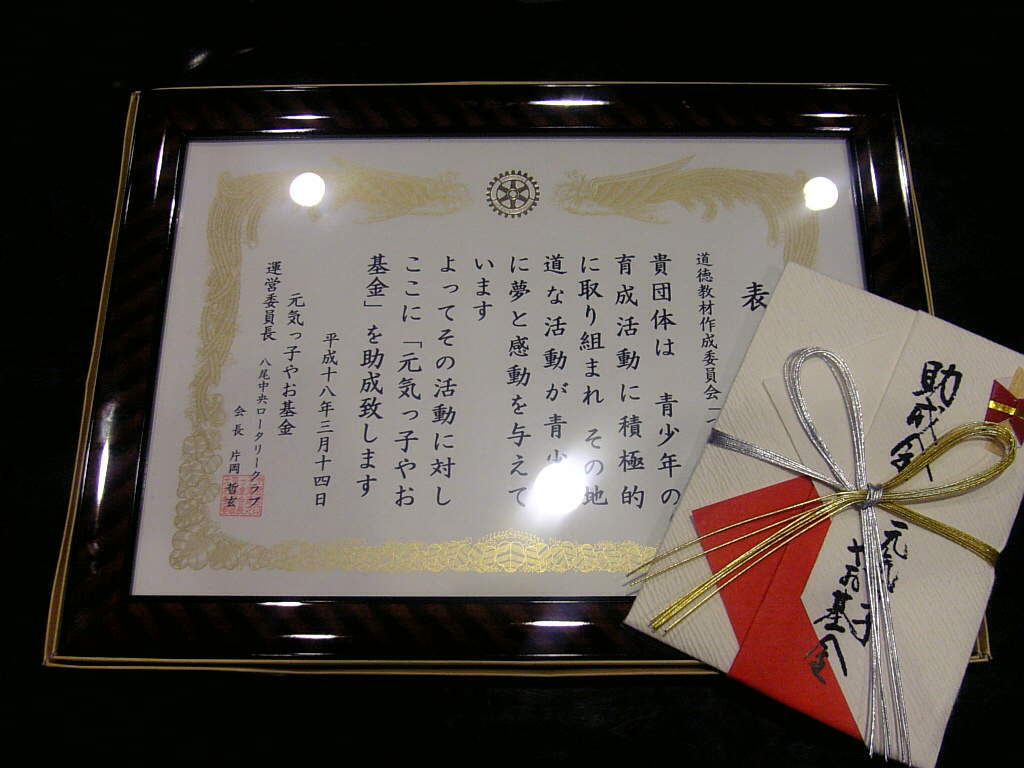 表
道徳教材作成委員会
貴団体は 青少年の
育成活動に積極的
に取り組まれ その地
道な活動が青少
に夢と感動を与えて
います
よってその活動に対し
ここに「元気っ子やお
基金」を助成致します
平成十八年三月十四日
元気っ子やお基金
運営委員長 八尾中央ロータリークラブ
会長 片岡哲玄
助成金
元気
子
やお基金